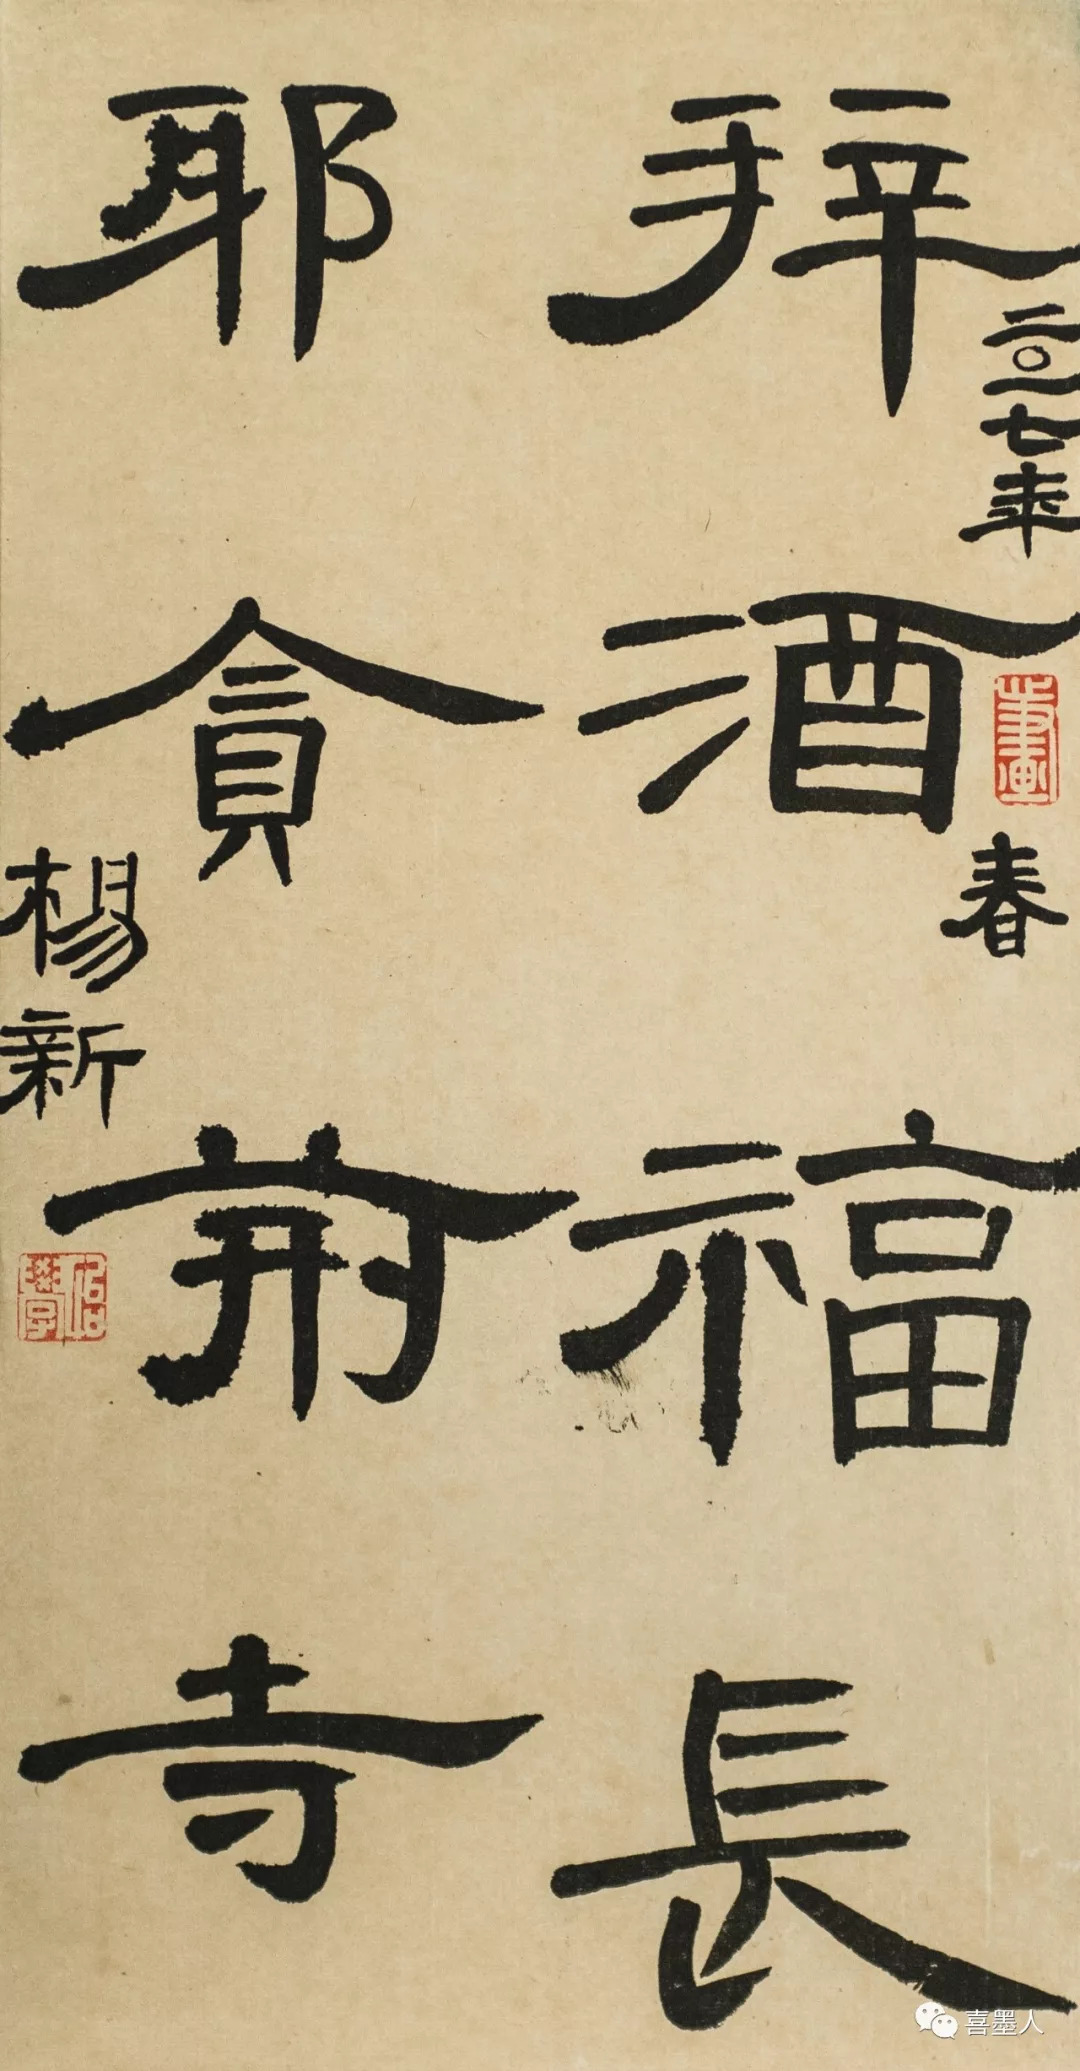 拜酒福長
耶貪前寺
二〇一七年
春
楊新
喜墨人